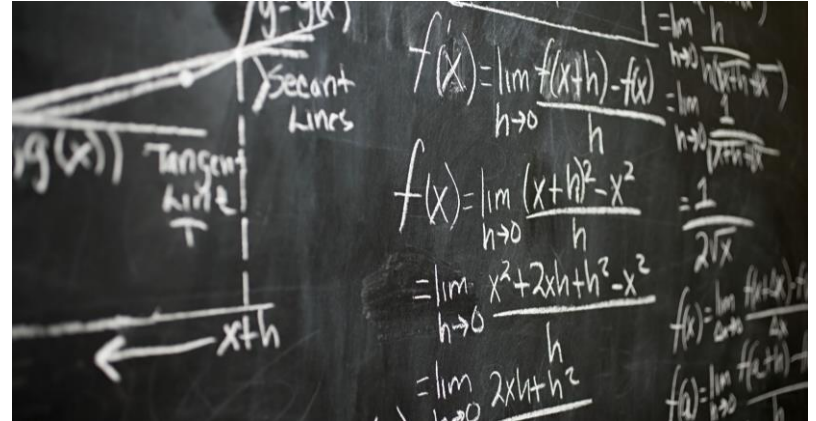 y-g(x)
Secant
Lines
g(x))
Tangent
Line
T
x+h
f'(x)=lim h→0 f(x+h)-f(x) / h
f(x)=lim h→0 (x+h)²-x² / h
=lim h→0 x²+2xh+h²-x² / h
=lim h→0 2xh+h²
=lim h→0 h
=lim h→0 1
=1 / 2√x
f(x)=lim
f(a)=lim h→0 f(a+h)-f